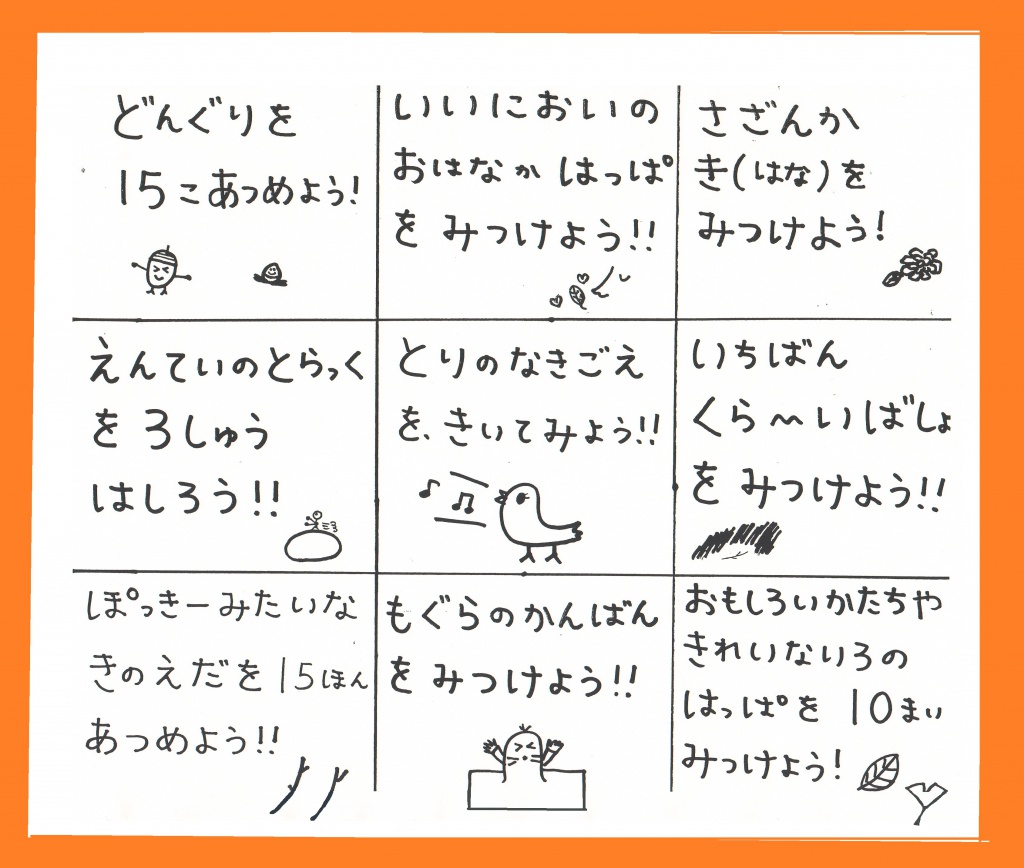 どんぐりを
15こあつめよう!
いいにおいの
おはなか はっぱ
を みつけよう!!
さざんか
き(はな)を
みつけよう!
えんていのとらっく
を 3しゅう
はしろう!!
とりのなきごえ
を、きいてみよう!!
いちばん
くら〜いばしょ
を みつけよう!!
ぽっきーみたいな
きのえだを 15ほん
あつめよう!!
もぐらのかんばん
を みつけよう!!
おもしろいかたちや
きれいないろの
はっぱを 10まい
みつけよう!